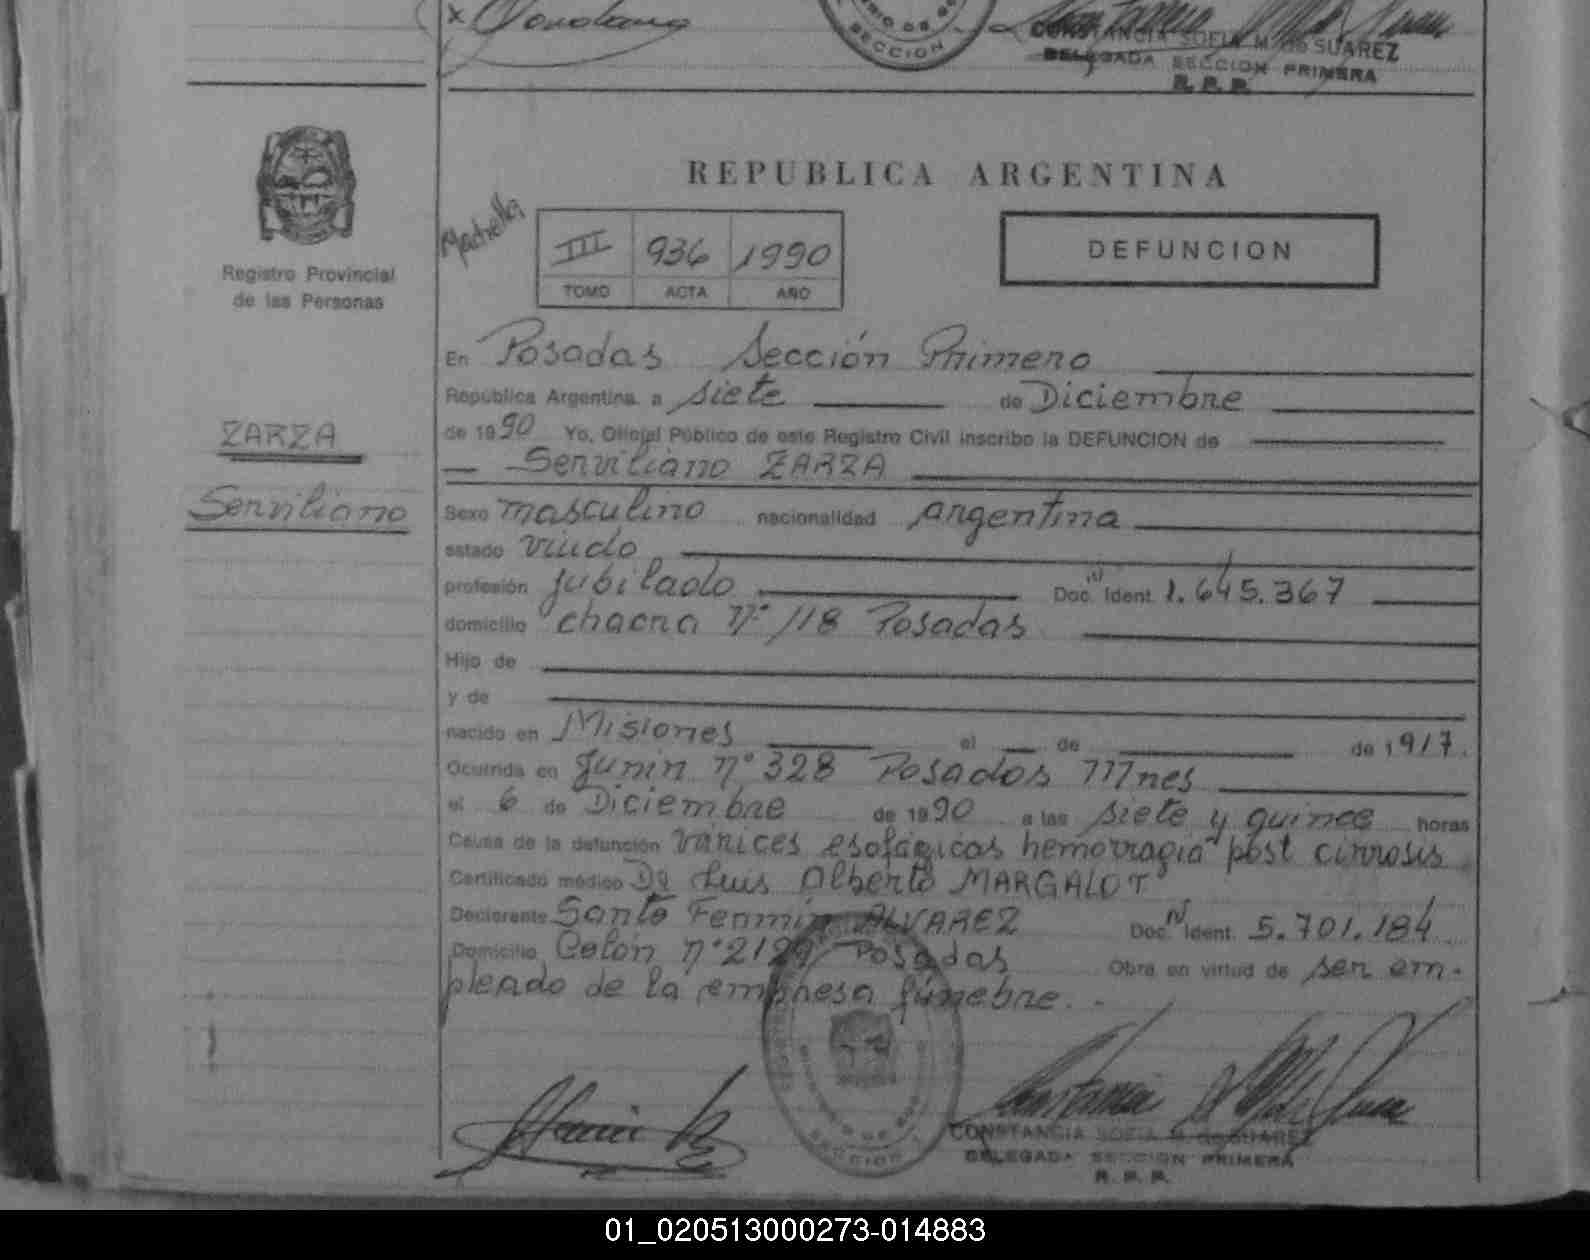 CONSTANCIA SOFIA M. de SUAREZ
DELEGADA SECCION PRIMERA
R. P. P.
SECCION
REPUBLICA ARGENTINA
Registro Provincial
de las Personas
III 936 1990
TOMO ACTA AÑO
DEFUNCION
En Posadas Sección Primera
República Argentina, a siete de Diciembre
de 1990 Yo, Oficial Público de este Registro Civil inscribo la DEFUNCION de
Serviliano ZARZA
ZARZA
Serviliano
Sexo masculino nacionalidad argentina
estado viudo
profesión jubilado Doc. Ident. 1.645.367
domicilio chacra Nº 118 Posadas
Hijo de
y de
nacido en Misiones el de de 1917.
Ocurrida en Junin nº 328 Posadas Mnes
el 6 de Diciembre de 1990 a las siete y quince horas
Causa de la defunción várices esofágicas hemorragia post cirrosis
Certificado médico Dr Luis Alberto MARGALOT
Declarante Santo Fermin ALVAREZ Doc. Ident. 5.701.184
Domicilio Colón nº 2129 Posadas Obra en virtud de ser em-
pleado de la empresa fúnebre.
SECCION
CONSTANCIA SOFIA M. de SUAREZ
DELEGADA SECCION PRIMERA
R. P. P.
01_020513000273-014883